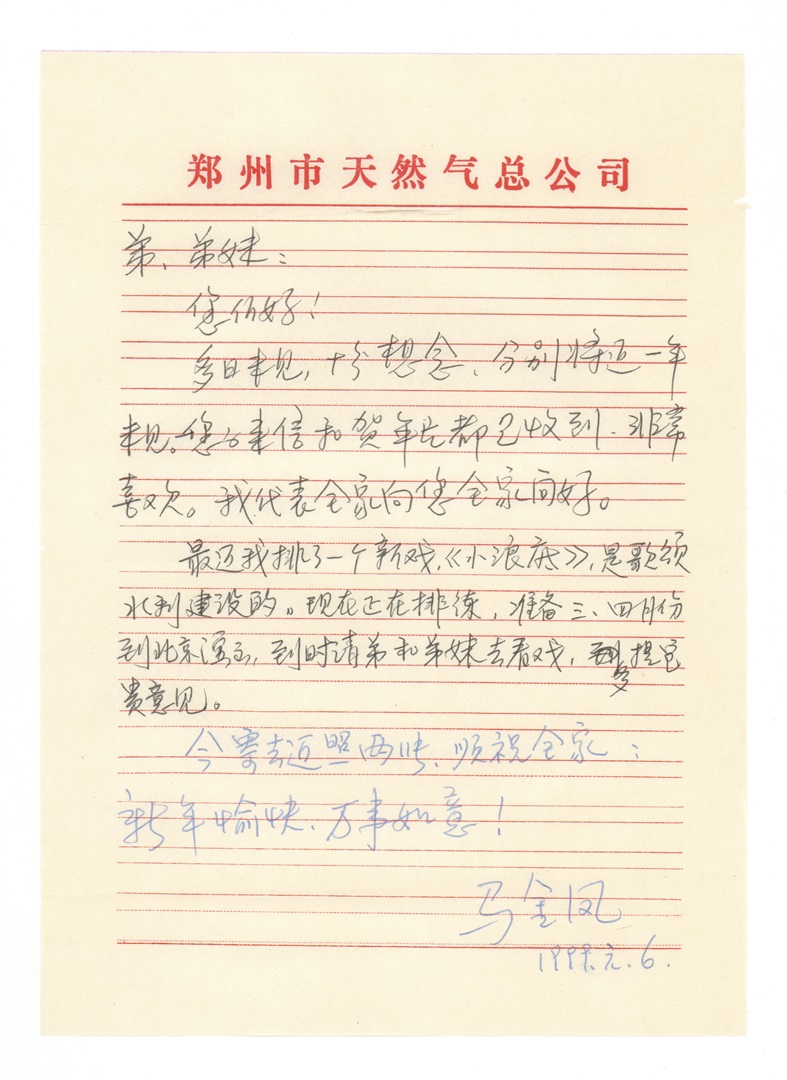 郑州市天然气总公司
弟、弟妹:
您们好!
多日未见,十分想念、分别将近一年
未见。您的来信和贺年片都已收到、非常
喜欢。我代表全家向您全家问好。
最近我排了一个新戏,《小浪底》,是歌颂
水利建设的。现在正在排练,准备三、四月份
到北京演出,到时请弟和弟妹去看戏,多提宝
贵意见。
今寄去近照两张、顺祝全家:
新年愉快、万事如意!
马金凤
1998.元.6.